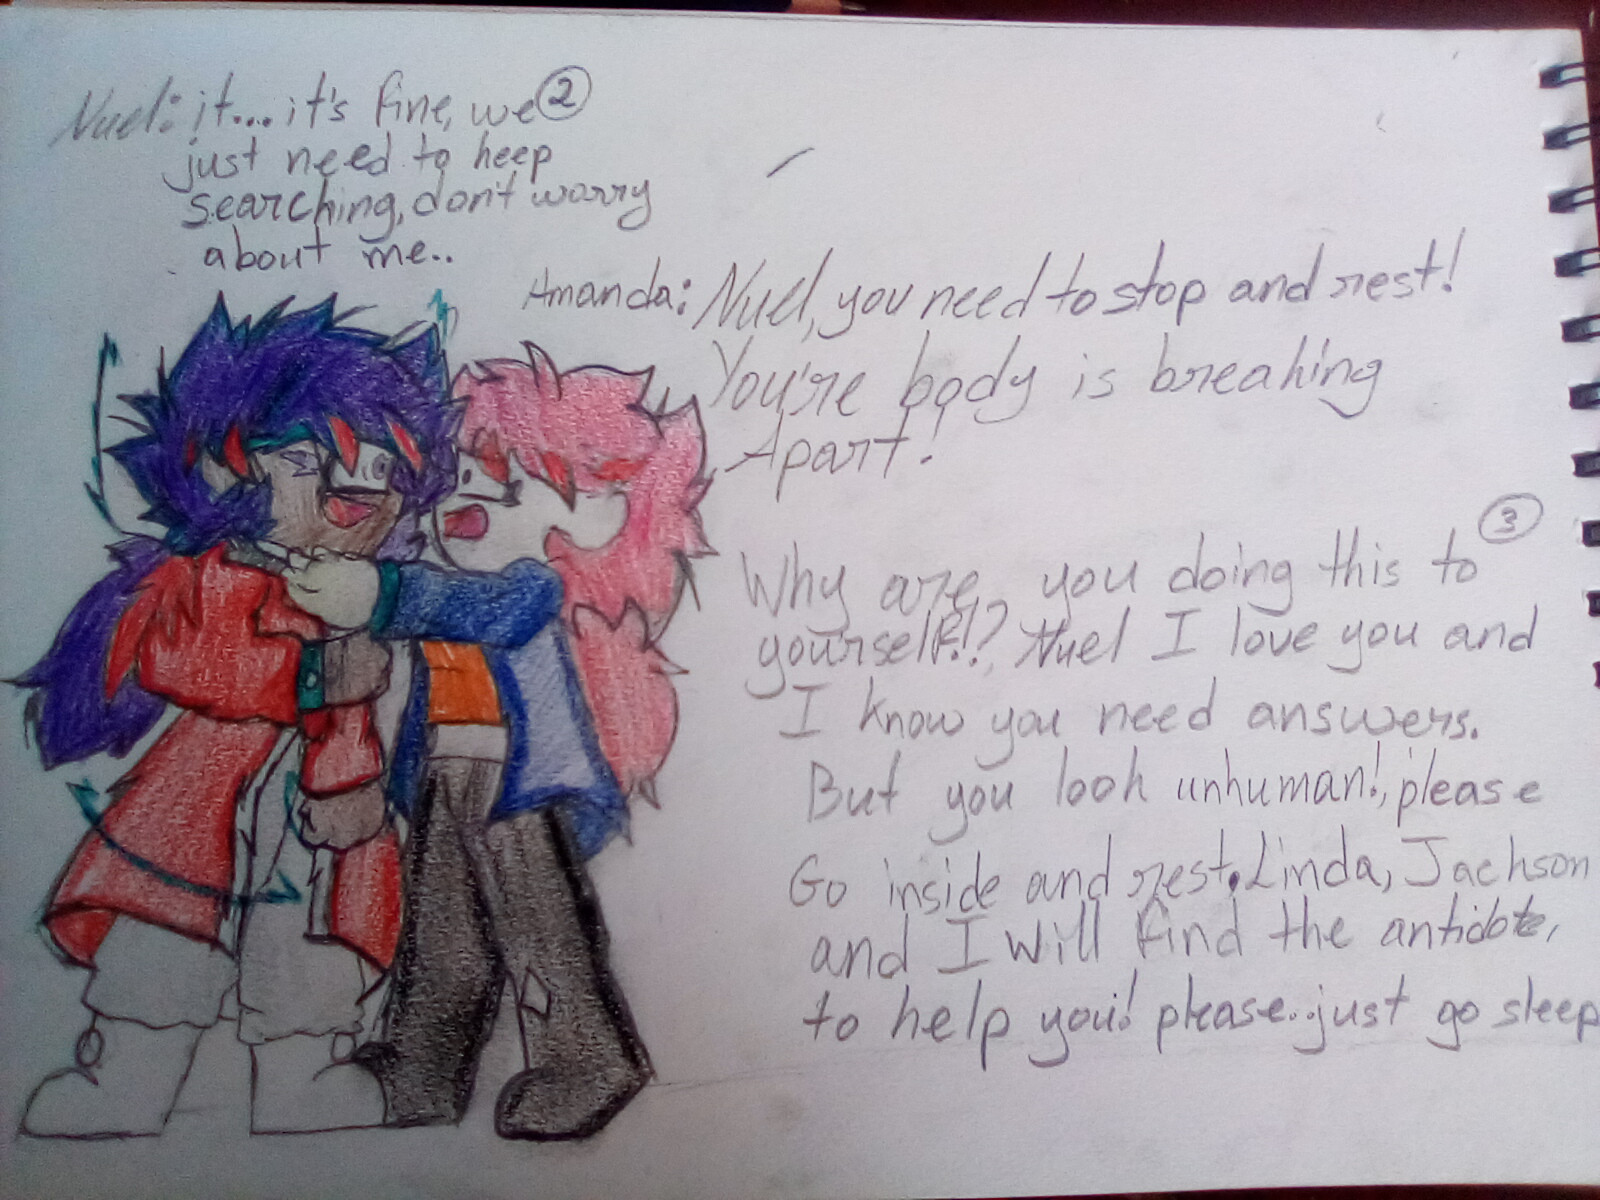 Nuel: it.... it's fine, we ②
just need to keep
searching, don't worry
about me..
Amanda: Nuel, you need to stop and rest!
You're body is breaking
Apart!
③
Why are you doing this to
yourself!? Nuel I love you and
I know you need answers.
But you look unhuman!, please
Go inside and rest. Linda, Jackson
and I will find the antidote,
to help you! please..just go sleep